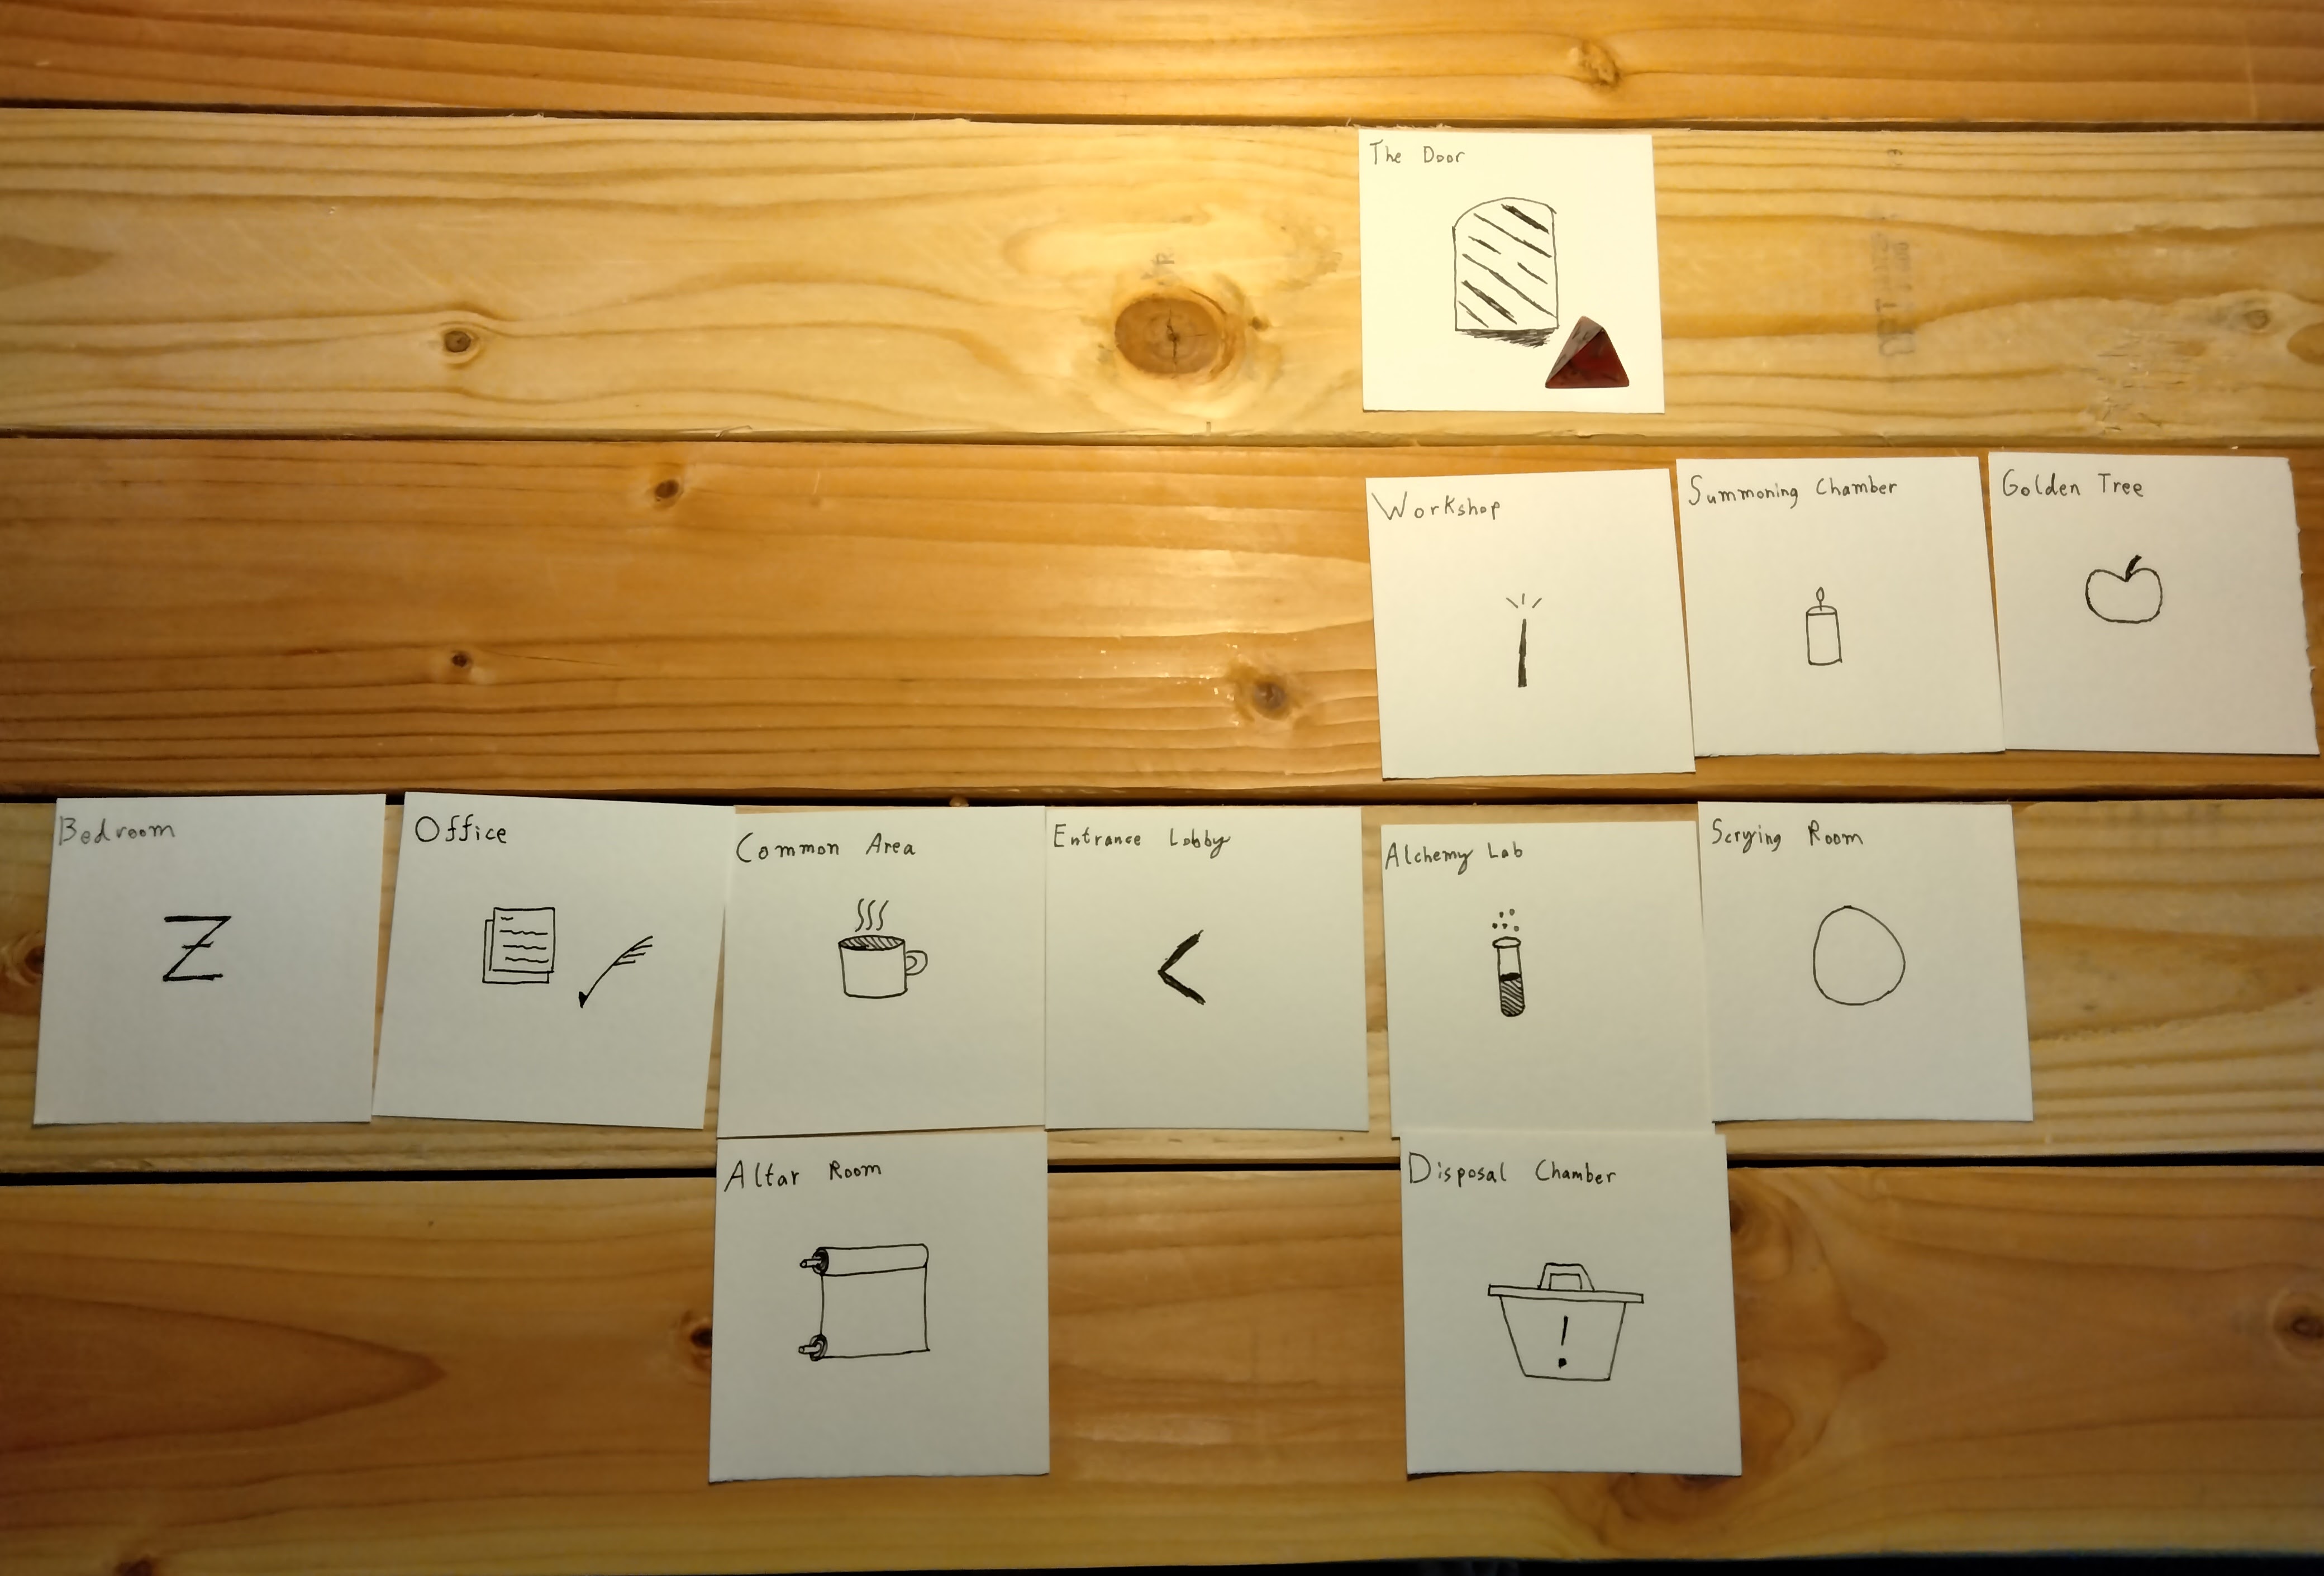 The Door
Workshop
Summoning Chamber
Golden Tree
Bedroom
Z
Office
Common Area
Entrance Lobby
<
Alchemy Lab
Scrying Room
Altar Room
Disposal Chamber
!